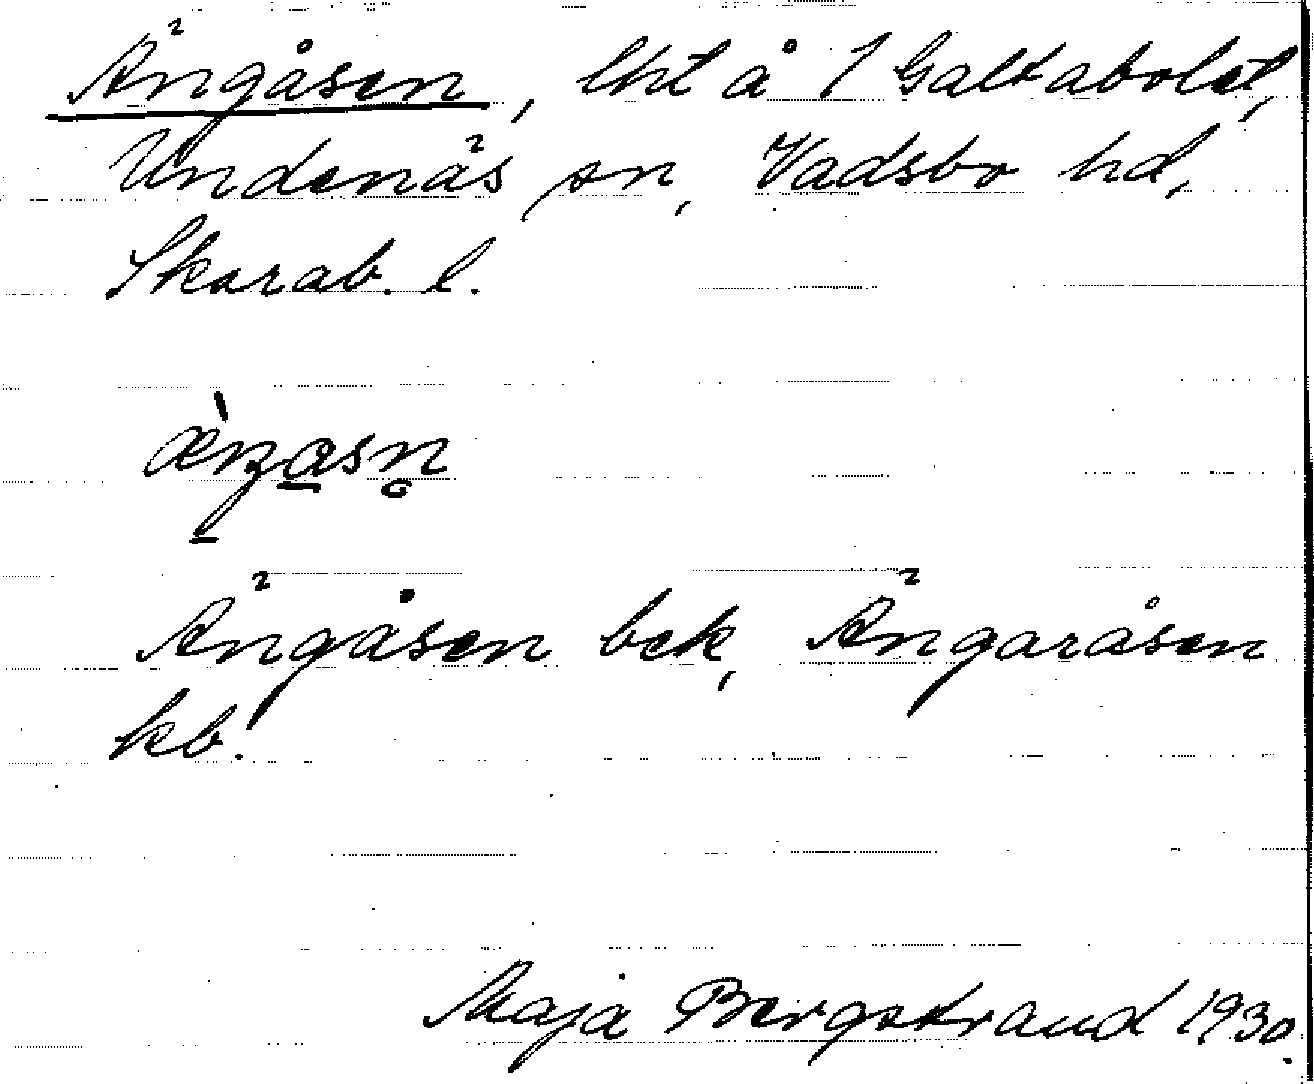 Ängåsen, lht å 1 Galtabolet,
Undenäs sn, Vadsbo hd,
Skarab. l.
Ängåsen bek, Ängaråsen
kb.
Maja Bergstrand 1930.